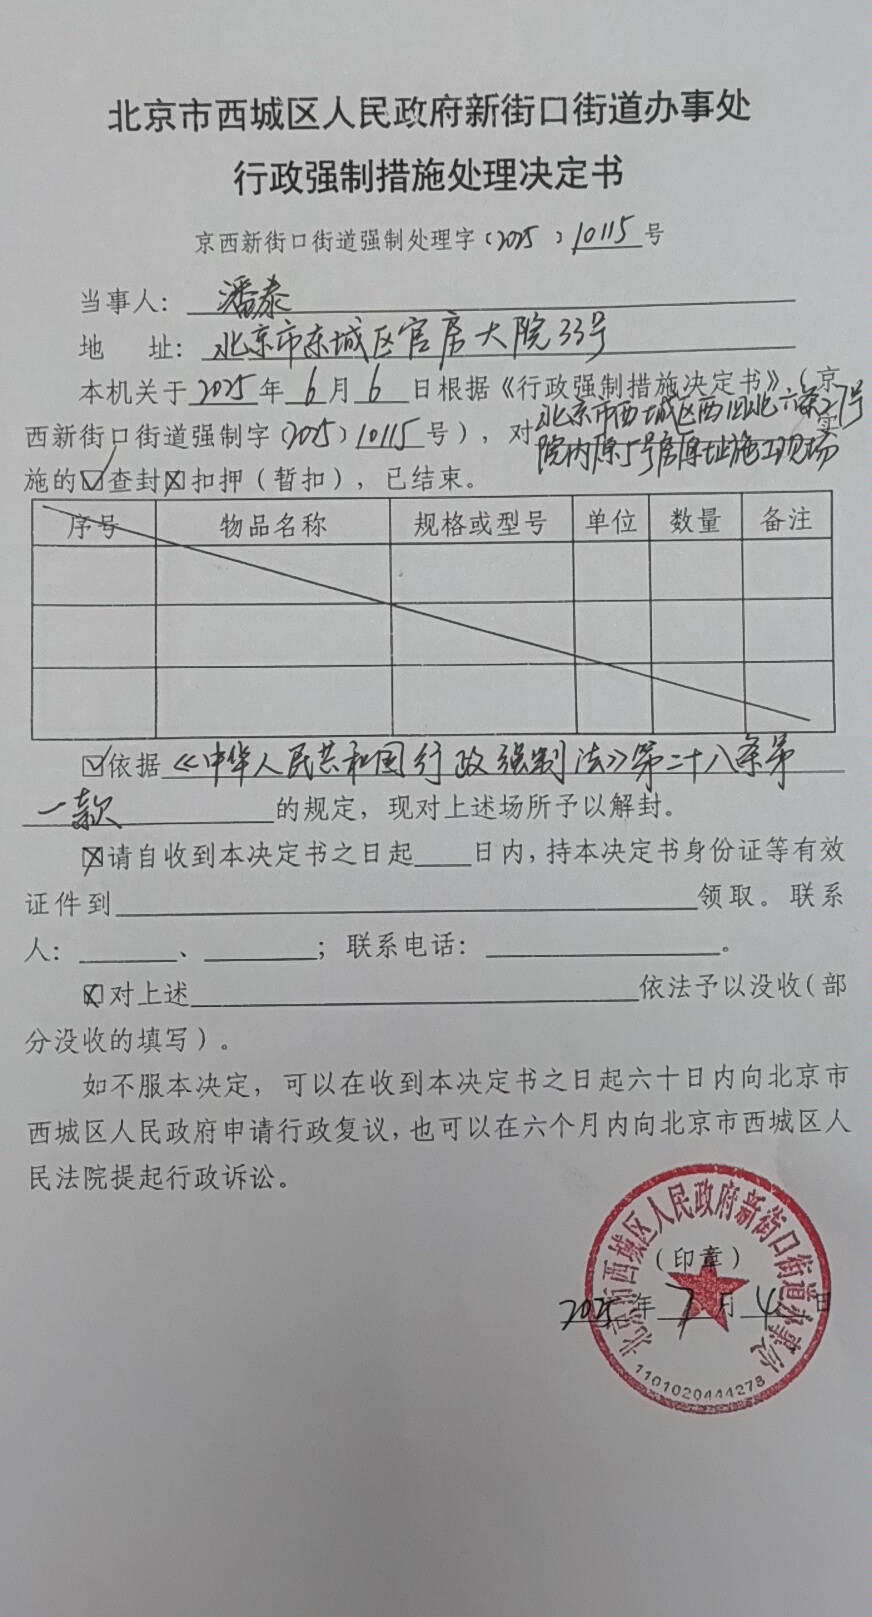 北京市西城区人民政府新街口街道办事处
行政强制措施处理决定书
京西新街口街道强制处理字（2025）10115号
当事人：潘泰
地 址：北京市东城区官房大院33号
本机关于2025年6月6日根据《行政强制措施决定书》（京
西新街口街道强制字（2025）10115号），对北京市西城区西四北六条27号
院内原5号房原址施工现场实
施的☑查封☒扣押（暂扣），已结束。
序号 物品名称 规格或型号 单位 数量 备注
☑依据《中华人民共和国行政强制法》第二十八条第
一款的规定，现对上述场所予以解封。
☒请自收到本决定书之日起____日内，持本决定书身份证等有效
证件到____领取。联系
人：____、____；联系电话：____。
☒对上述____依法予以没收（部
分没收的填写）。
如不服本决定，可以在收到本决定书之日起六十日内向北京市
西城区人民政府申请行政复议，也可以在六个月内向北京市西城区人
民法院提起行政诉讼。
北京市西城区人民政府新街口街道办事处
（印章）
2025年7月4日
1101020444278